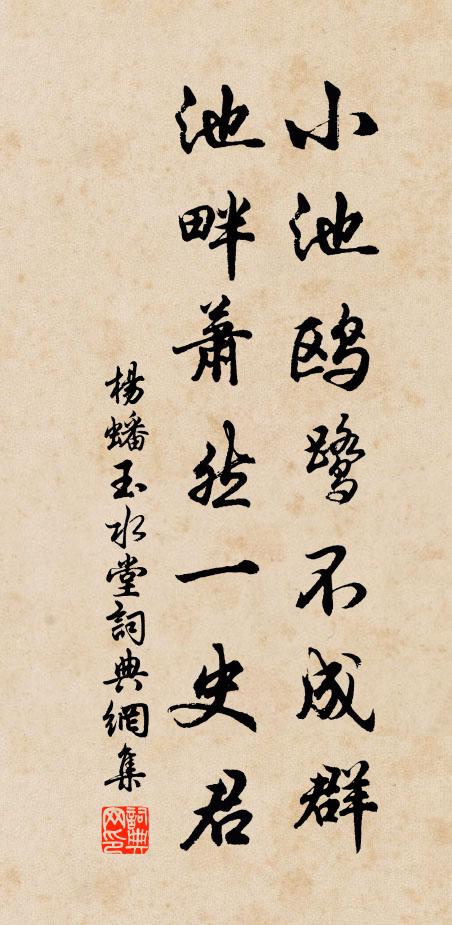 小池鸥鹭不成群
池畔萧然一史君
楊蟠玉水堂詞典網集
詞典网印